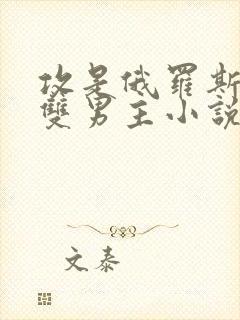 攻是俄羅斯
雙男主小說
文泰